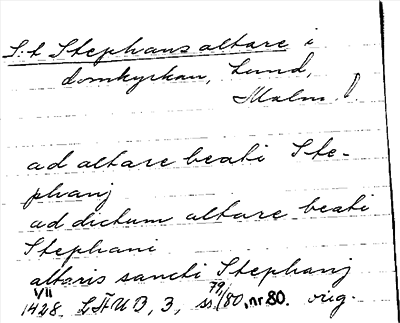 S:t Stephans altare i
domkyrkan, Lund,
Malm.
ad altare beati Ste-
phanj
ad dictum altare beati
Stephani
altaris sancti Stephanj
1/VII 1428. LÄUB, 3, ss. 79/180, nr 80. orig.